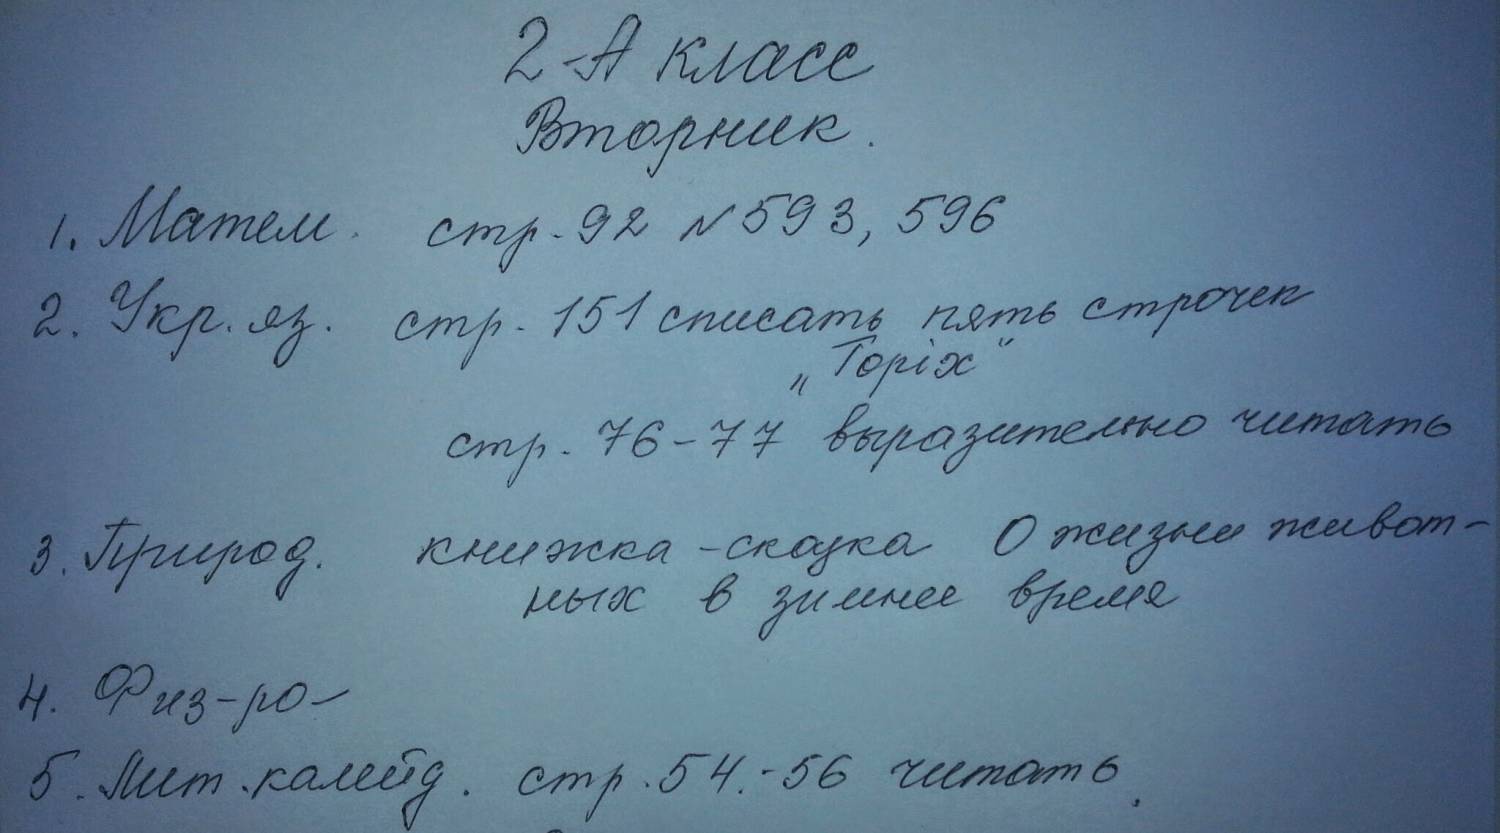 2-А класс
Вторник.
1. Матем. стр. 92 № 593, 596
2. Укр. яз. стр. 151 списать пять строчек
„Горіх"
стр. 76-77 выразительно читать
3. Природ. книжка-сказка О жизни живот-
ных в зимнее время
4. Физ-ра-
5. Лит. калейд. стр. 54.-56 читать.